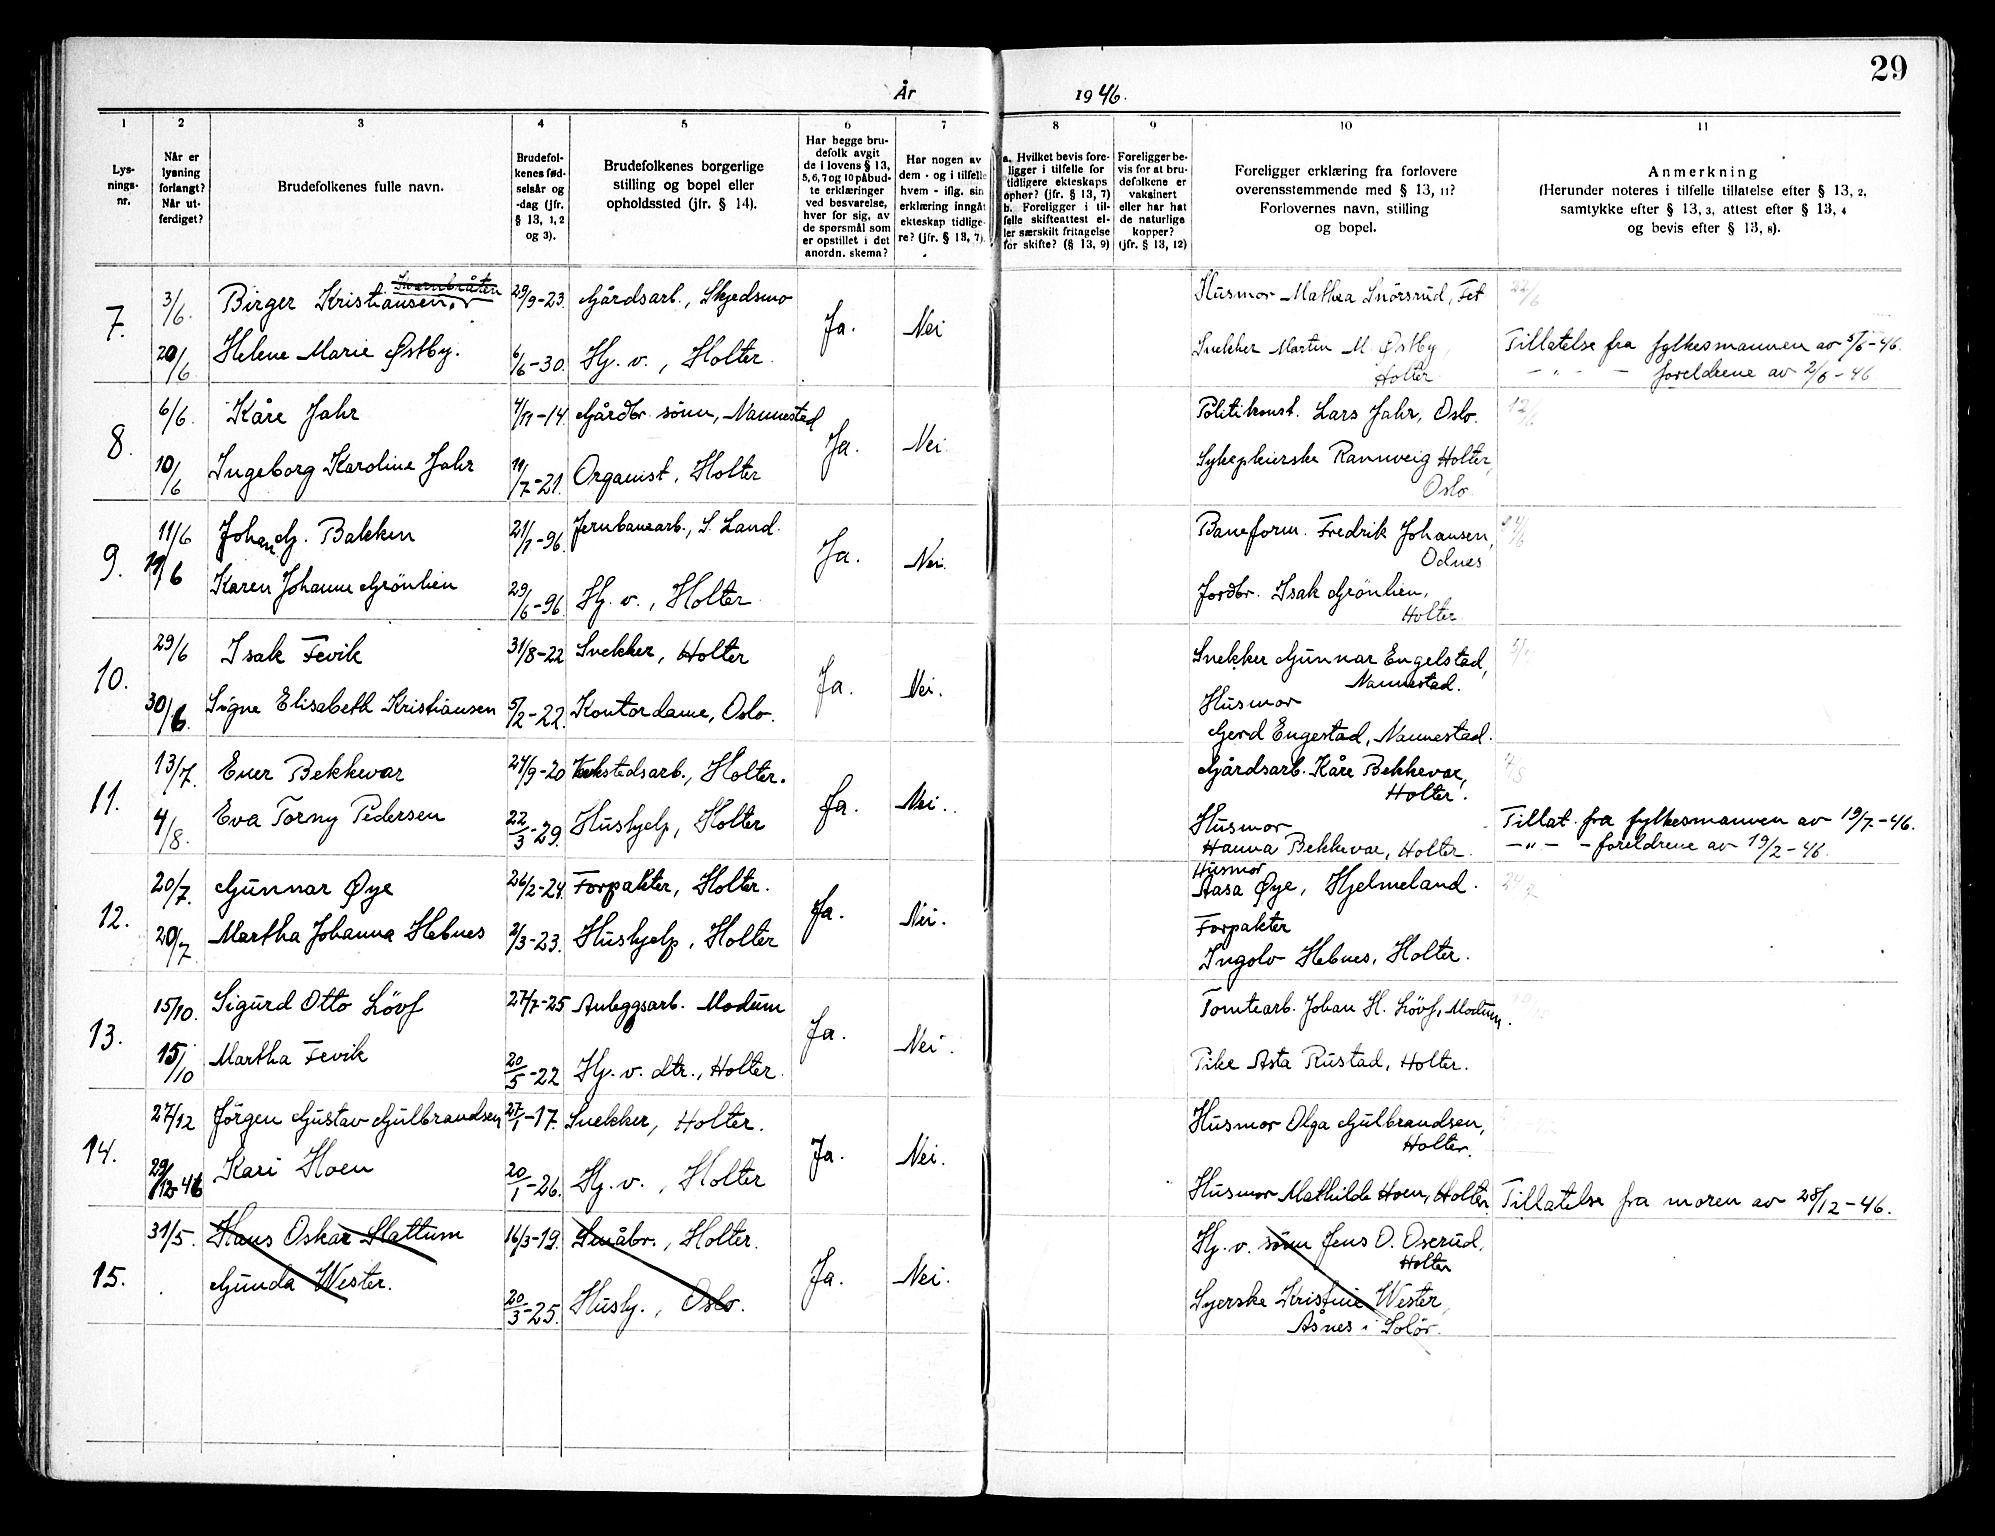 29
År 1946.
1 2 3 4 5 6 7 8 9 10 11
Lys-
nings-
nr.
Når er
lysning
forlangt?
Når ut-
ferdiget?
Brudefolkenes fulle navn.
Brudefol-
kenes fød-
selsår og
-dag (jfr.
§ 13, 1, 2
og 3).
Brudefolkenes borgerlige
stilling og bopel eller
opholdssted (jfr. § 14).
Har begge bru-
defolk avgit
de i lovens § 13,
5, 6, 7 og 10 påbud-
te erklæringer
ved besvarelse,
hver for sig, av
de spørsmål som
er opstillet i det
anordn. skema?
Har nogen av
dem - og i tilfelle
hvem - iflg. sin
erklæring inngåt
ekteskap tidlige-
re? (jfr. § 13, 7).
a. Hvilket bevis fore-
ligger i tilfelle for
tidligere ekteskaps
ophør? (jfr. § 13, 7)
b. Foreligger i til-
felle skifteattest el-
ler særskilt fritagelse
for skifte? (§ 13, 9)
Foreligger be-
vis for at bru-
defolkene er
vaksinert
eller har hat
de naturlige
kopper?
(jfr. § 13, 12)
Foreligger erklæring fra forlovere
overensstemmende med § 13, 11?
Forlovernes navn, stilling
og bopel.
Anmerkning
(Herunder noteres i tilfelle tillatelse efter § 13, 2,
samtykke efter § 13, 3, attest efter § 13, 4
og bevis efter § 13, 8).
7. 3/6. Birger Kristiansen. 29/9-23. Gårdsarb., Skjedsmo Ja. Nei Husmor Mathea Snörsrud, Fet 22/6
20/6 Helene Marie Østby. 6/6-30. Hj. v., Holter. Snekker Martin M. Østby Tillatelse fra fylkesmannen av 5/6-46.
Holter - " - foreldrene av 2/6-46
8. 6/6. Kåre Jahr 4/11-14 Gårdbr. sönn, Nannestad Ja. Nei Politikonst. Lars Jahr, Oslo. 12/6
10/6 Ingeborg Karoline Jahr 19/7-21. Organist, Holter Sykepleierske Rannveig Holter,
Oslo.
9. 11/6 Johan G. Bakken 21/1-96. Jernbanearb., S. Land. Ja. Nei. Baneform. Fredrik Johansen,
Odnes
11/6 Karen Johanne Grönlien 29/6-96. Hj. v., Holter. Jordbr. Isak Grönlien,
Holter
10. 29/6 Isak Fevik 31/8-22 Snekker, Holter Ja. Nei. Snekker Gunnar Engelstad,
Nannestad.
30/6. Signe Elisabeth Kristiansen 5/2-22. Kontordame, Oslo. Husmor
Gerd Engestad, Nannestad.
11. 13/7. Ener Bekkevar 24/9-20 Verkstedsarb., Holter. Ja. Nei. Gårdsarb. Kåre Bekkevar,
Holter.
4/8. Eva Torny Pedersen 22/3-29. Hushjelp, Holter Husmor Tillat. fra fylkesmannen av 19/7-46.
Hanna Bekkevar, Holter. - " - foreldrene av 19/2-46.
12. 20/7. Gunnar Øye 26/2-24. Forpakter, Holter. Ja. Nei. Husmor
Aasa Øye, Hjelmeland.
20/7. Martha Johanna Hebnes 2/3-23. Hushjelp, Holter Forpakter
Ingolv Hebnes, Holter.
13. 15/10. Sigurd Otto Lövf 27/7-25 Anleggsarb. Modum Ja. Nei. Tomtearb. Johan H. Lövf, Modum.
15/10 Martha Fevik 20/5-22 Hj. v. dtr., Holter. Pike Asta Rustad, Holter.
14. 27/12 Jörgen Gustav Gulbrandsen 27/1-17. Snekker, Holter. Ja. Nei. Husmor Olga Gulbrandsen,
Holter.
29/12-46 Kari Hoen 20/1-26. Hj. v., Holter Husmor Mathilde Hoen, Holter. Tillatelse fra moren av 28/12-46.
15. 31/5. Hans Oskar Slattum 16/3-19. Småbr., Holter. Ja. Nei. Hj. v. sönn Jens O. Oserud,
Holter
Gunda Wester. 20/3-25. Hushj., Oslo. Syerske Kristine Wester,
Åsnes i Solör.